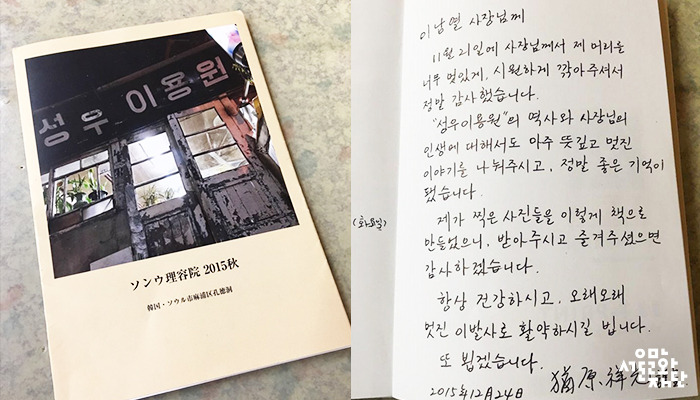 성우 이용원
ソンウ理容院 2015秋
韓国・ソウル市麻浦区孔徳洞
이남열 사장님께
11월 21일에 사장님께서 제 머리를
너무 멋있게, 시원하게 깎아주셔서
정말 감사했습니다.
"성우이용원"의 역사와 사장님의
인생에 대해서도 아주 뜻깊고 멋진
이야기를 나눠주시고, 정말 좋은 기억이
됐습니다.
제가 찍은 사진들을 이렇게 책으로
만들었으니, 받아주시고 즐겨주셨으면
감사하겠습니다.
항상 건강하시고, 오래오래
멋진 이발사로 활약하시길 빕니다.
또 뵙겠습니다.
2015年12月24日
原祥
(화요일)
서울문화재단